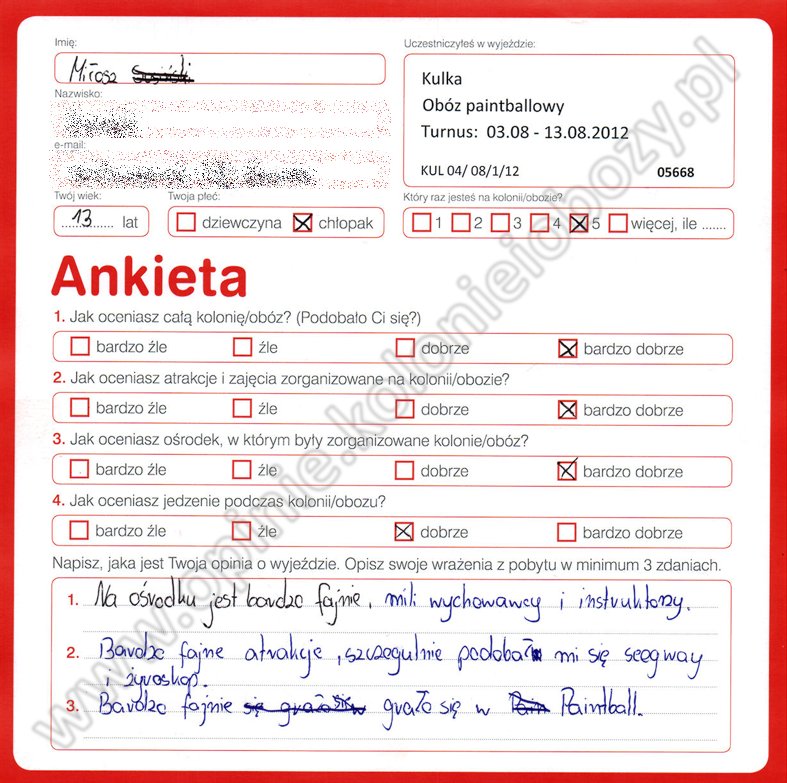 Imię:
Miłosz
Nazwisko:
e-mail:
Twój wiek:
13 lat
Twoja płeć:
dziewczyna chłopak
Uczestniczyłeś w wyjeździe:
Kulka
Obóz paintballowy
Turnus: 03.08 - 13.08.2012
KUL 04/ 08/1/12 05668
Który raz jesteś na kolonii/obozie?
1 2 3 4 5 więcej, ile .......
Ankieta
1. Jak oceniasz całą kolonię/obóz? (Podobało Ci się?)
bardzo źle źle dobrze bardzo dobrze
2. Jak oceniasz atrakcje i zajęcia zorganizowane na kolonii/obozie?
bardzo źle źle dobrze bardzo dobrze
3. Jak oceniasz ośrodek, w którym były zorganizowane kolonie/obóz?
bardzo źle źle dobrze bardzo dobrze
4. Jak oceniasz jedzenie podczas kolonii/obozu?
bardzo źle źle dobrze bardzo dobrze
Napisz, jaka jest Twoja opinia o wyjeździe. Opisz swoje wrażenia z pobytu w minimum 3 zdaniach.
1. Na ośrodku jest bardzo fajnie, mili wychowawcy i instruktorzy.
2. Bardzo fajne atrakcje, szczegulnie podobał mi się seegway
i żyroskop.
3. Bardzo fajnie się grało się w grało się w Pain Paintball.
www.opinie.kolonieiobozy.pl